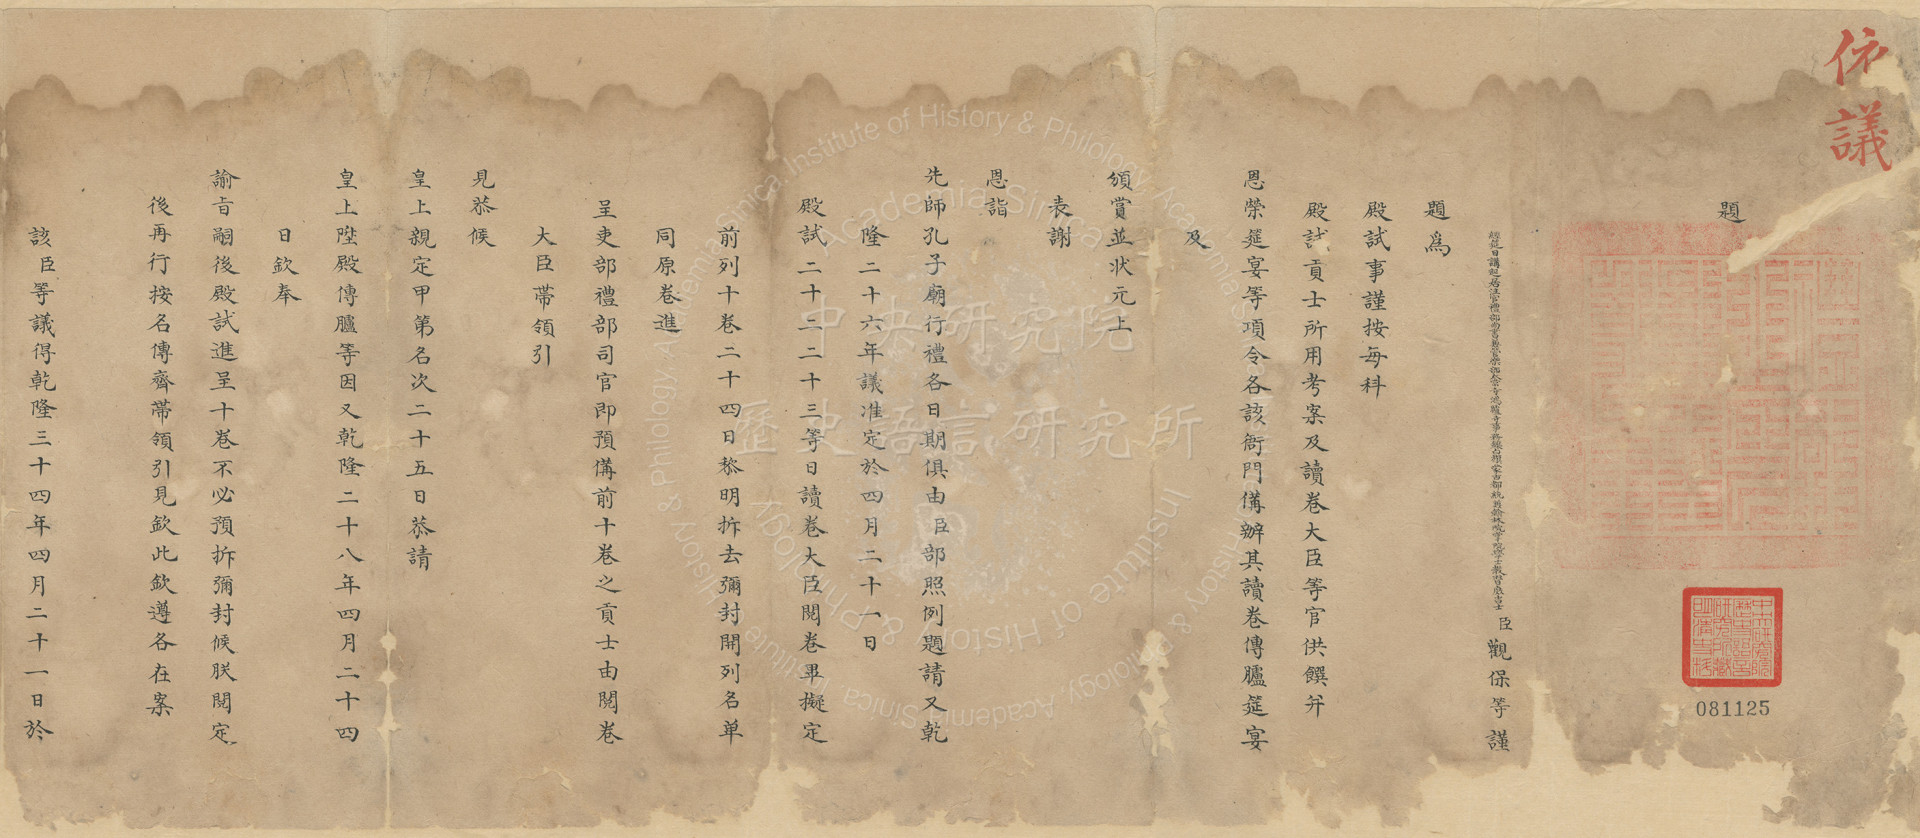 依議
題
經筵日講起居注官禮部尚書兼管樂部太常寺鴻臚寺事務鑲白旗蒙古都統兼翰林院掌院學士教習庶吉士臣觀保等謹
題為
殿試事謹按每科
殿試貢士所用考案及讀卷大臣等官供饌并
恩榮筵宴等項令各該衙門備辦其讀卷傳臚筵宴
及
頒賞並狀元上
表謝
恩詣
先師孔子廟行禮各日期俱由臣部照例題請又乾
隆二十六年議准定於四月二十一日
殿試二十二二十三等日讀卷大臣閱卷畢擬定
前列十卷二十四日黎明拆去彌封開列名單
同原卷進
呈吏部禮部司官即預備前十卷之貢士由閱卷
大臣帶領引
見恭候
皇上親定甲第名次二十五日恭請
皇上陞殿傳臚等因又乾隆二十八年四月二十四
日欽奉
諭旨嗣後殿試進呈十卷不必預拆彌封候朕閱定
後再行按名傳齊帶領引見欽此欽遵各在案
該臣等議得乾隆三十四年四月二十一日於
中央研究院歷史語言研究所藏明清史料
081125
中央研究院
歷史語言研究所
Institute of History & Philology, Academia Sinica